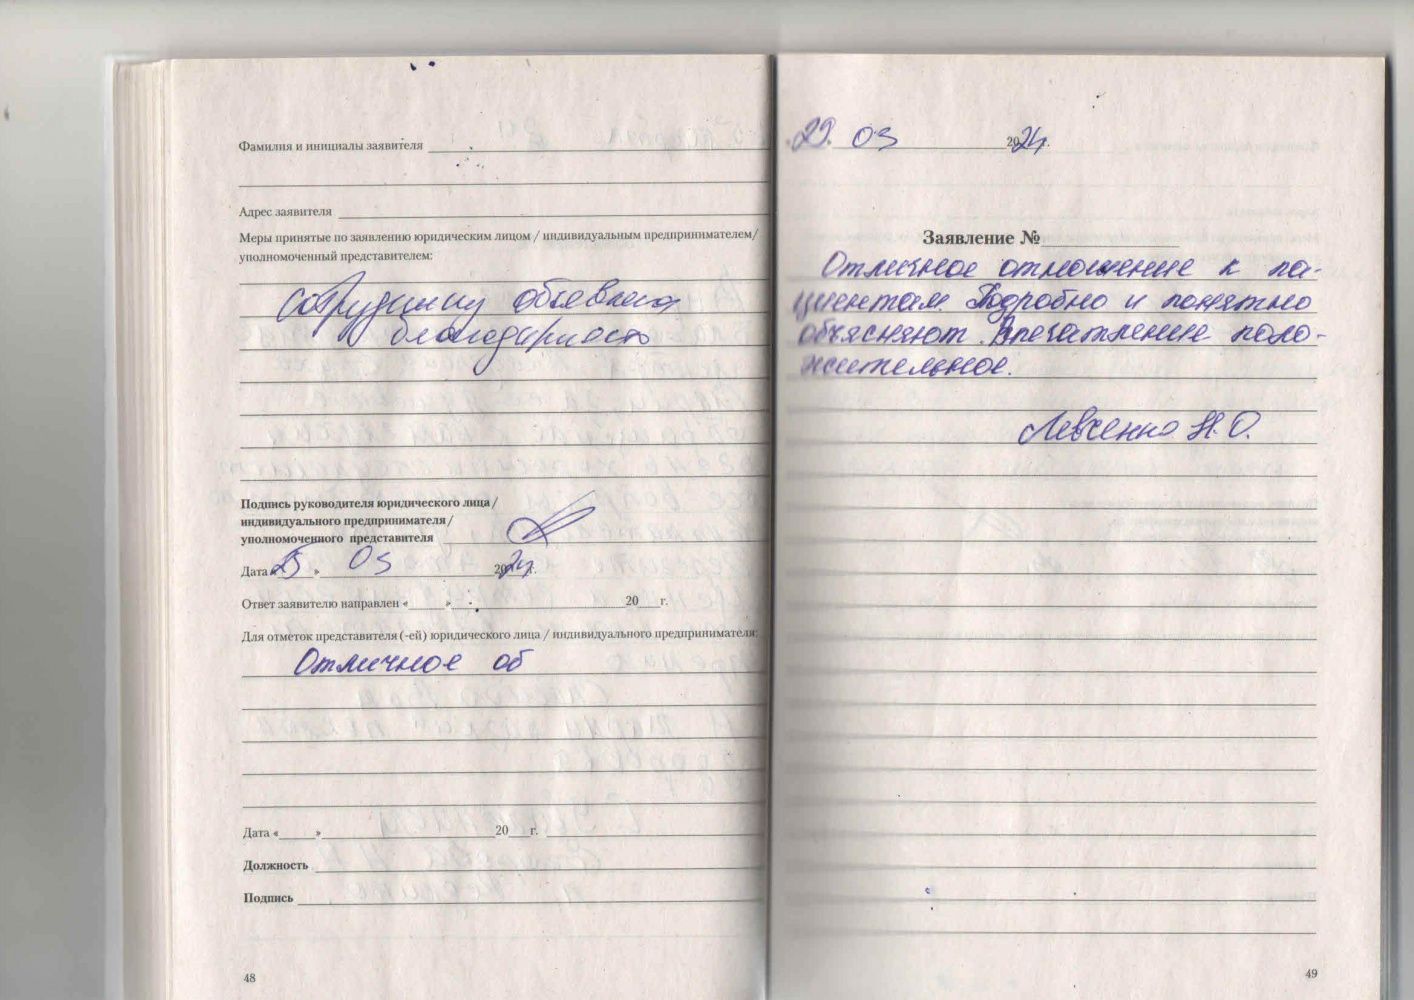 Фамилия и инициалы заявителя
Адрес заявителя
Меры принятые по заявлению юридическим лицом / индивидуальным предпринимателем/
уполномоченный представителем:
сотруднику объявлена
благодарность
Подпись руководителя юридического лица/
индивидуального предпринимателя/
уполномоченного представителя
Дата «25» 03 2024г.
Ответ заявителю направлен « » 20 г.
Для отметок представителя (-ей) юридического лица / индивидуального предпринимателя:
Отличное об
Дата « » 20 г.
Должность
Подпись
48
29. 03 2024г.
Заявление №
Отличное отношение к па-
циентам. Подробно и понятно
объясняют. Впечатление поло-
жительное.
Левченко Н.О.
49